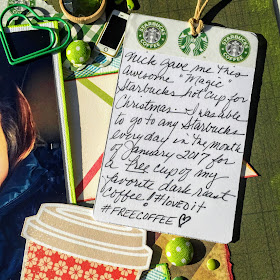 STARBUCKS COFFEE STARBUCKS COFFEE
Nick gave me this
awesome "Magic"
Starbucks hot cup for
Christmas. I was able
to go to any Starbucks
everyday in the month
of January 2017 for
a free cup of my
favorite dark roast
coffee! #loved it
#FREECOFFEE ♡